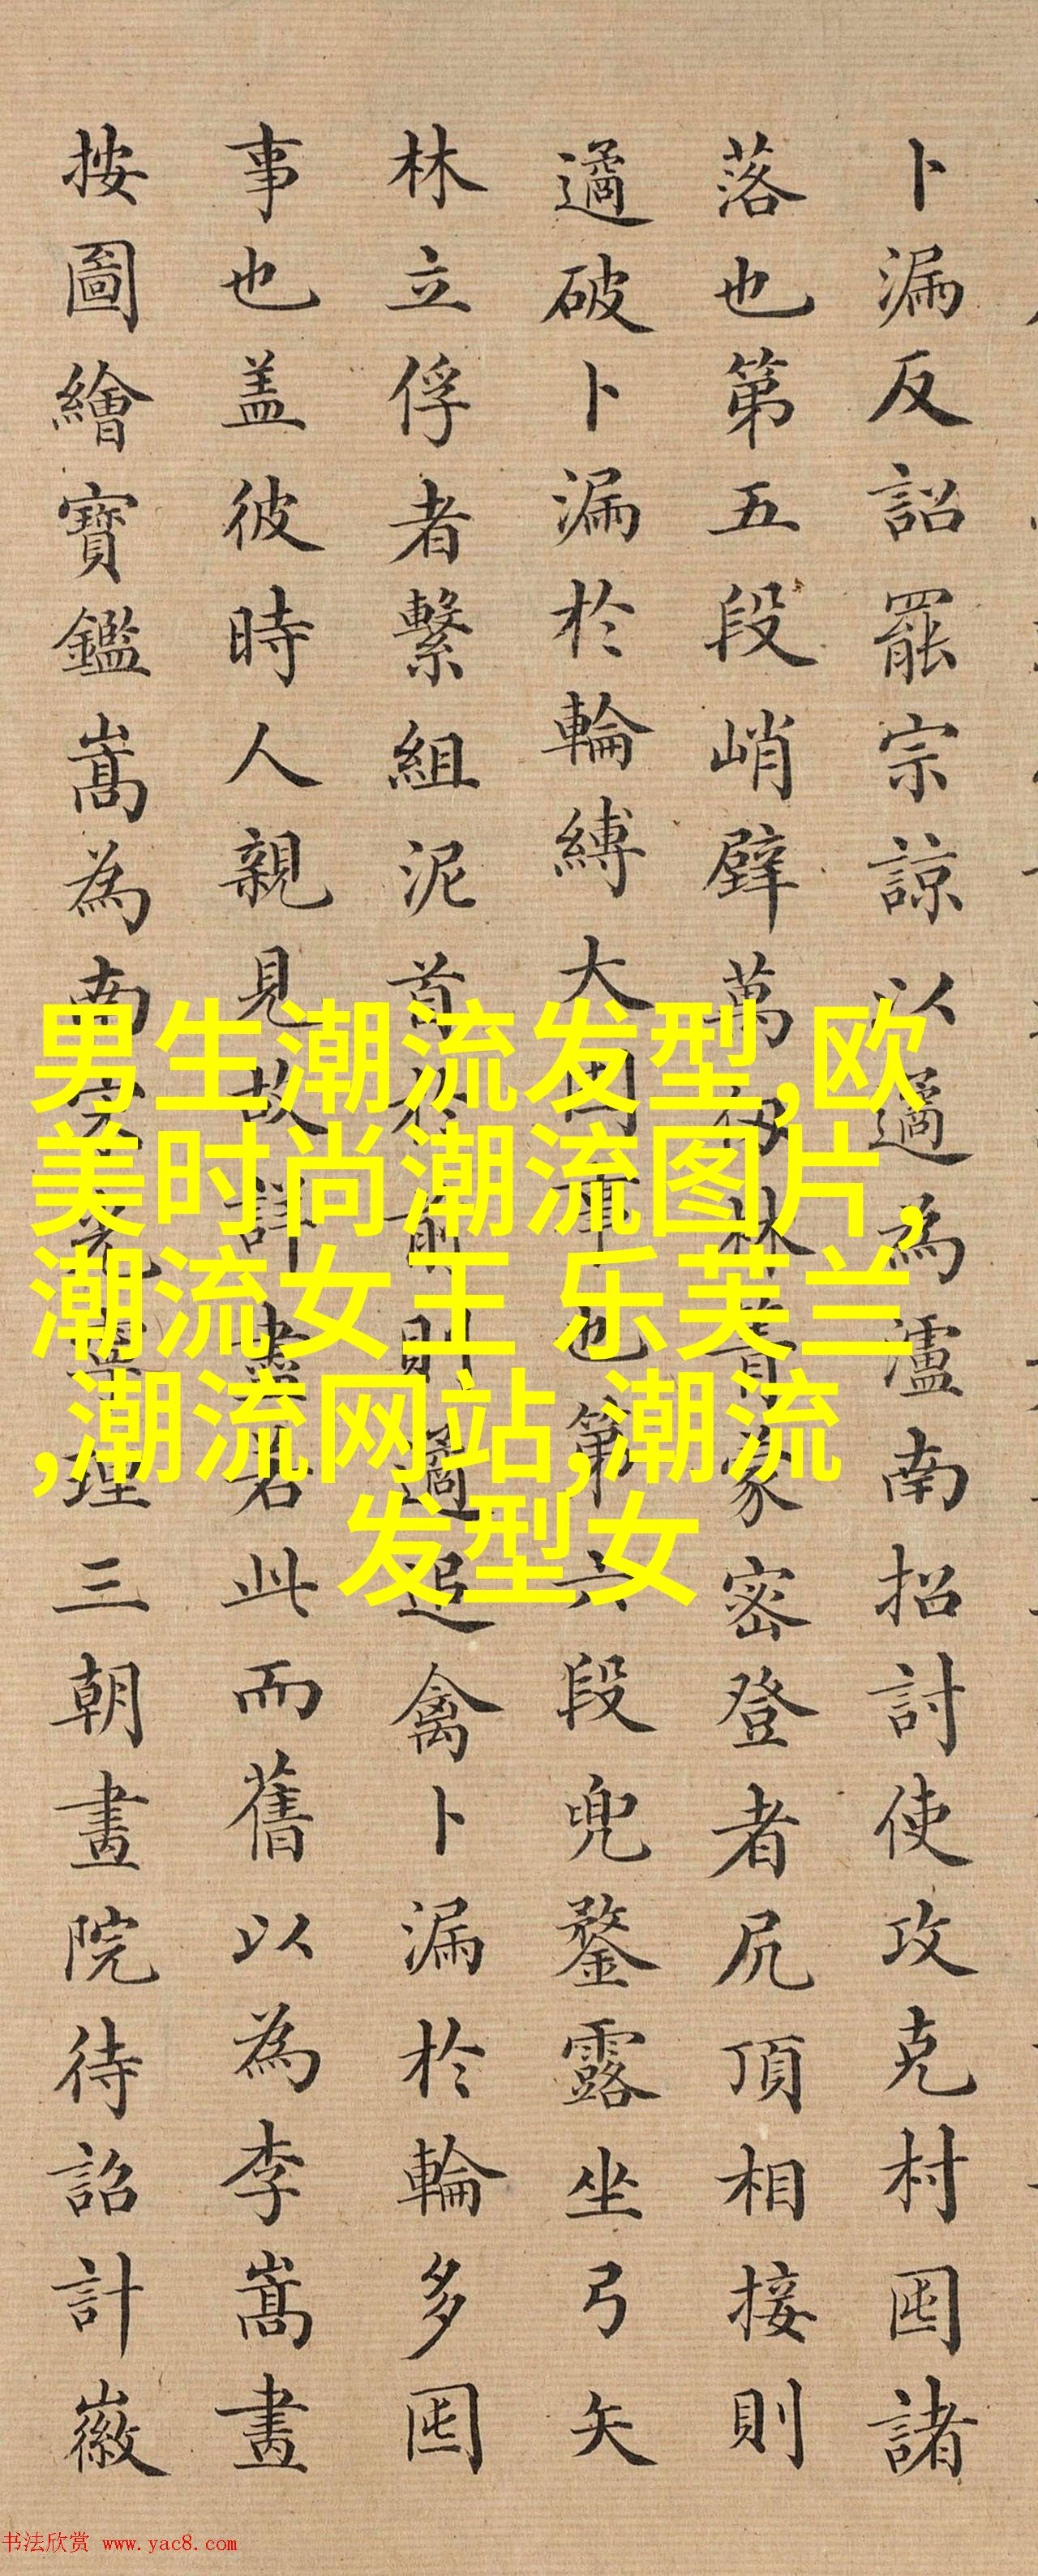 卜漏反詔罷宗諒以遹為瀘南招討使攻克村囤諸
落也第五段峭壁萬仞林箐蒙密登者尻頂相接則
遹破卜漏於輪縛大囤事也第六段兜鍪露坐弓矢
林立俘者繫組泥首於前則遹追禽卜漏於輪多囤
事也盖彼時人親見故詳盡若此而舊以為李嵩畫
按圖繪寶鑑嵩為南宋光寧理三朝畫院待詔計徽
男生潮流发型,欧
美时尚潮流图片,
潮流女王 乐芙兰
,潮流网站,潮流
发型女
书法欣赏 www.yac8.com